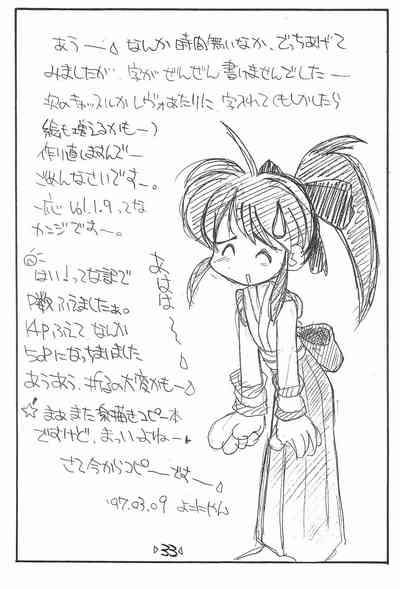 あうー なんか時間無いなか、でっちあげて
みましたが、字がぜんぜん書けませんでしたー
次のキャッスルかレヴォあたりに 字入れて(もしかしたら
絵も増えるかもー)
作り直しますんでー
ごめんなさいですー。
一応 Vol.1.9.ってな
カンジですー。
はい!ってな訳で
P数ふえましたぁ。
14Pふえて なんか
50Pになっちまいました
あうあう、大変かもー
まぁまた楽描きコピー本
ですけど、まっいよねー
さて今からコピーですー
'97.03.09 よこにゃん
あははー
33